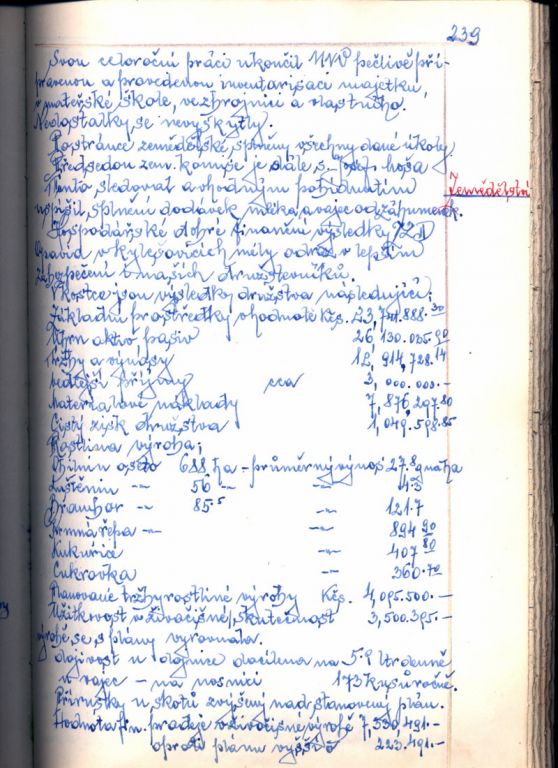 239
Svou celoroční práci ukončil MNV pečlivě při-
pravenou a provedenou inventarisací majetku,
v mateřské škole, ve zbrojnici a vlastního.
Nedostatky se nevyskytly.
Po stránce zemědělské, splněny všechny dané úkoly.
Předsedou zem. komise je stále s. Josef
Tento sledoval a vhodným pobídnutím
Zemědělství
uspíšil splnění dodávek mléka, a vajec od záhumenek.
Hospodářské dobré finanční výsledky JZD
v Kylešovicích měly odraz v lepším
zabezpečení i našich družstevníků.
V kostce jsou výsledky družstva následující:
Základní prostředky v hodnotě Kčs. 23,741.888.30
Úhrn aktiv pasiv 26,130.035.90
Tržby a výnosy 12,914,728.14
Vedlejší příjmy cca 3,000.000.-
Materialové náklady 7,876,297.80
Čistý zisk družstva 1,049.598.85
Rostliná výroba:
Obilnin oseto 688 ha - průměrný výnos 27.8 q na ha
Luštěnin -"- 56 -"- -"-
Brambor -"- 85.5 -"- 121.7
Krmná řepa -"- -"- 894.90
Kukuřice -"- 407.80
Cukrovka -"- 360.70
Planované tržby rostliné výroby Kčs. 4,095.500.-
Užitkovost v živočišné/skutečnost 3,500.395.-
výrobě, se s plány vyrovnala.
dojivost u dojnice docílena na 5.9 ltr denně
u vajec - na nosnici 173 kusů ročně.
Přírustky u skotů zvýšeny nad stanovený plán.
Hodnota prodeje v živočišné výrobě 7,530,491.-
oproti plánu vyšší o 223.491.-